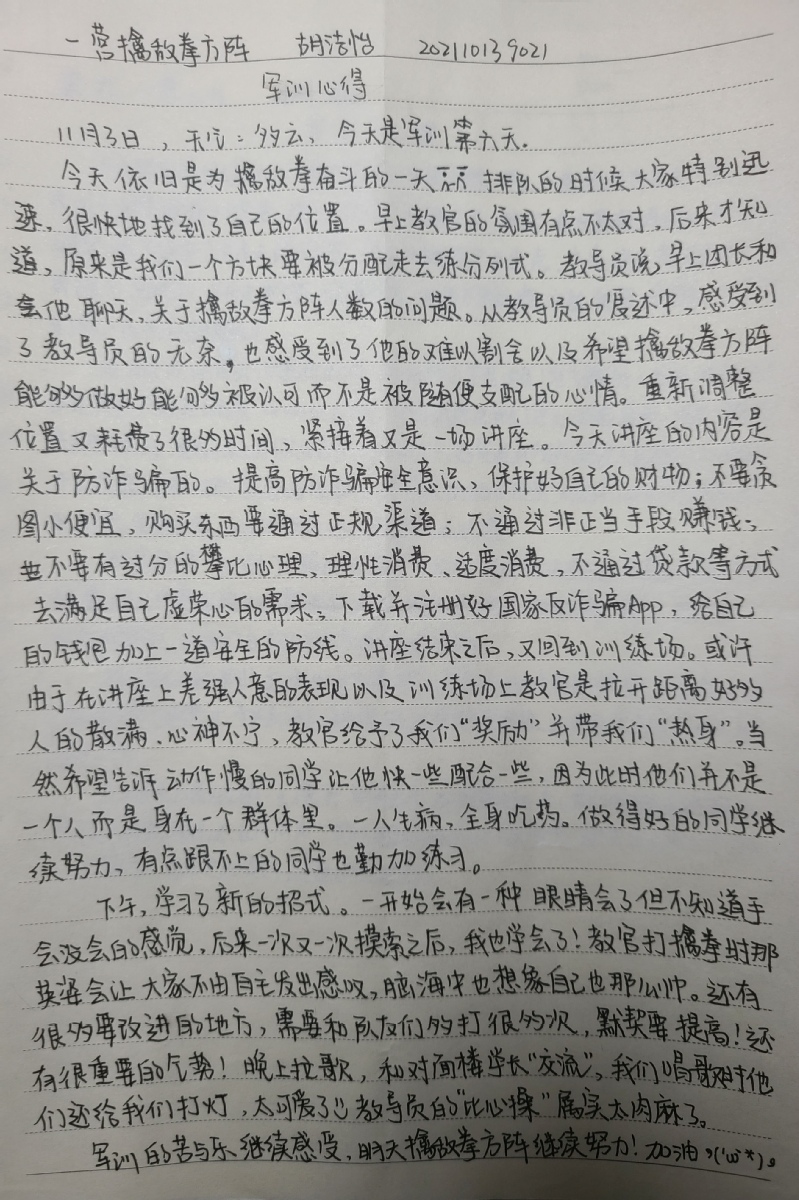 一营擒敌拳方阵 胡洁怡 202110139021
军训心得
11月3日，天气：多云，今天是军训第六天.
今天依旧是为擒敌拳奋斗的一天 排队的时候大家特别迅
速，很快地找到了自己的位置。早上教官的氛围有点不太对，后来才知
道，原来是我们一个方块要被分配走去练分列式。教导员说，早上团长和
他聊天，关于擒敌拳方阵人数的问题。从教导员的复述中，感受到
了教导员的无奈，也感受到了他的难以割舍以及希望擒敌拳方阵
能够做好能够被认可而不是被随便支配的心情。重新调整
位置又耗费了很多时间，紧接着又是一场讲座。今天讲座的内容是
关于防诈骗的。提高防诈骗安全意识，保护好自己的财物；不要贪
图小便宜，购买东西要通过正规渠道；不通过非正当手段赚钱；
也不要有过分的攀比心理、理性消费、适度消费，不通过贷款等方式
去满足自己虚荣心的需求；下载并注册好国家反诈骗App，给自己
的钱包加上一道安全的防线。讲座结束之后，又回到训练场。或许
由于在讲座上差强人意的表现以及训练场上教官是拉开距离好多
人的散满、心神不宁，教官给予了我们“奖励”并带我们“热身”。当
然希望告诉动作慢的同学让他快一些配合一些，因为此时他们并不是
一个人而是身在一个群体里。一人生病，全身吃药。做得好的同学继
续努力，有点跟不上的同学也勤加练习。
下午，学习了新的招式。一开始会有一种眼睛会了但不知道手
会没会的感觉，后来一次又一次摸索之后，我也学会了！教官打擒拳时那
英姿会让大家不由自主发出感叹，脑海中也想象自己也那么帅。还有
很多要改进的地方，需要和队友们多打很多次，默契要提高！还
有很重要的气势！晚上拉歌，和对面楼学长“交流”，我们唱歌时他
们还给我们打灯，太可爱了！教导员的“比心操”属实太肉麻了。
军训的苦与乐继续感受，明天擒敌拳方阵继续努力！加油,('ω'*)。